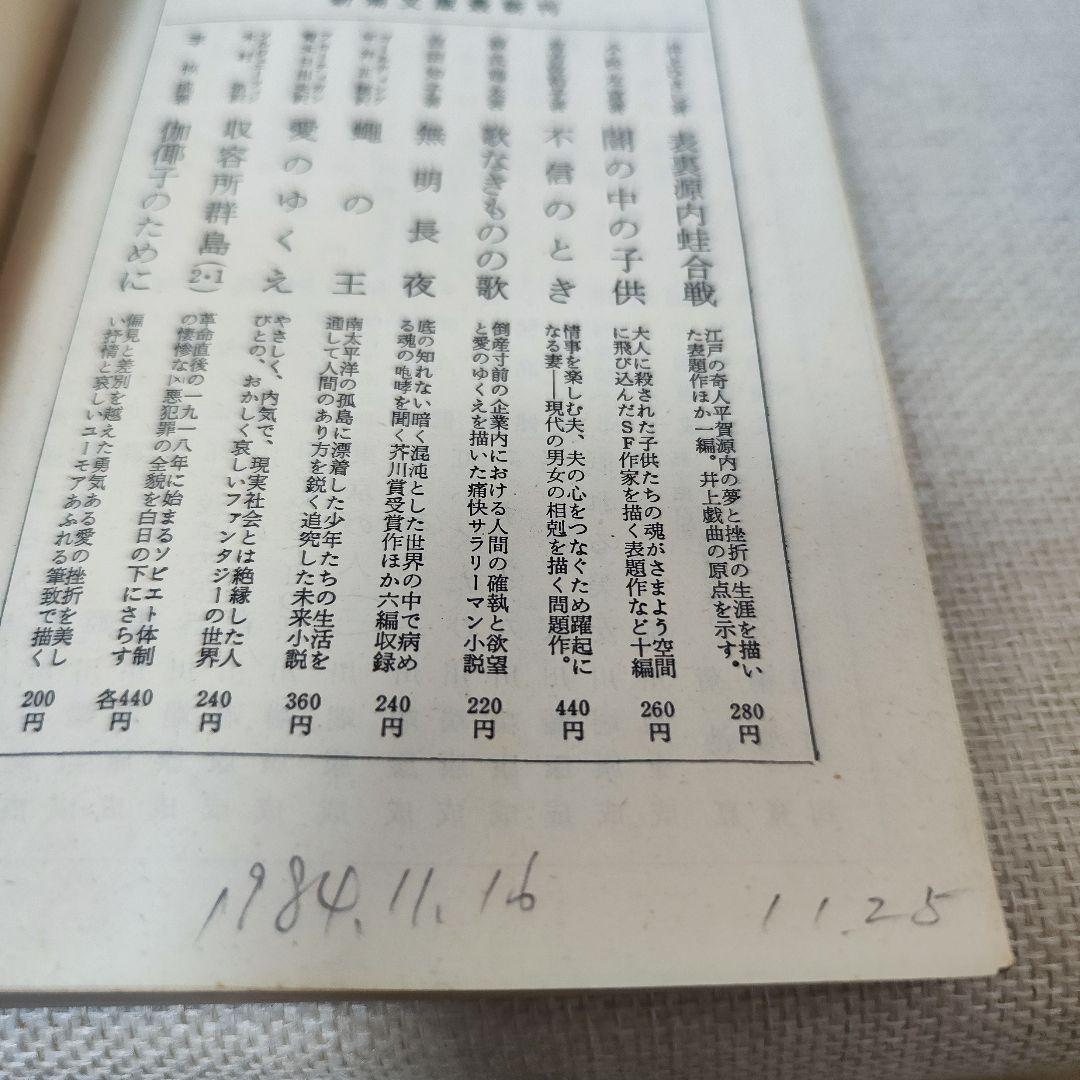 表裏源内蛙合戦
江戸の奇人平賀源内の夢と挫折の生涯を描い
た表題作ほか一編。井上戯曲の原点を示す。
280円
闇の中の子供
大人に殺された子供たちの魂がさまよう空間
に飛び込んだSF作家を描く表題作など十編
260円
不信のとき
情事を楽しむ夫、夫の心をつなぐため躍起に
なる妻——現代の男女の相剋を描く問題作。
440円
歌なきものの歌
倒産寸前の企業内における人間の確執と欲望
と愛のゆくえを描いた痛快サラリーマン小説
220円
無明長夜
底の知れない暗く混沌とした世界の中で病め
る魂の咆哮を聞く芥川賞受賞作ほか六編収録
240円
蠅の王
南太平洋の孤島に漂着した少年たちの生活を
通して人間のあり方を鋭く追究した未来小説
360円
愛のゆくえ
やさしく、内気で、現実社会とは絶縁した人
びとの、おかしく哀しいファンタジーの世界
240円
収容所群島(2・1)
革命直後の一九一八年に始まるソビエト体制
の悽惨な〈悪犯罪の全貌を白日の下にさらす
各440円
伽倻子のために
偏見と差別を越えた勇気ある愛の挫折を美し
い抒情と哀しいユーモアあふれる筆致で描く
200円
1984.11.16
11.25